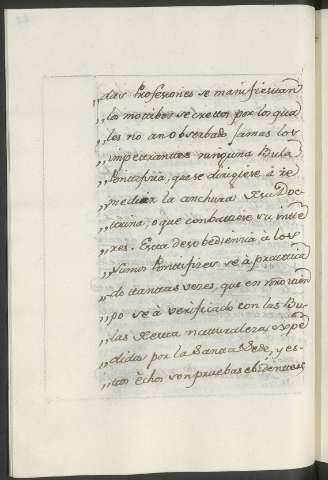 „das Profesiones se manifiestan
„los motibos secretos por los qua
„les no an observado jamas los
„impetrantes ninguna Bula
„Pontificia, que se dirigiese á re
„mediar la anchura de su Doc-
„trina, o que combatiese su inte
„res. Esta desobediencia á los
„Sumos Pontifices se à practica
„do tantas veces, que en nro tiem
„po se à verificado con las Bu-
„las de esta naturaleza espe
„didas por la Santa Sede, y es-
„tos echos son pruebas evidentes